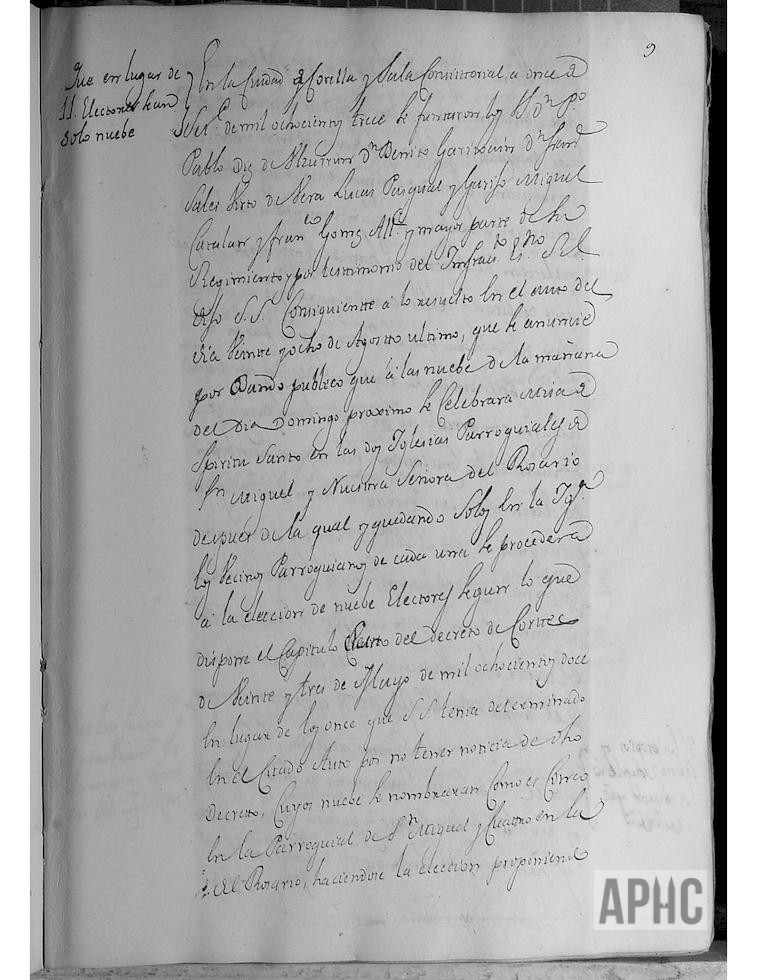 9
Que en lugar de
11. Electores sean
solo nuebe
En la Ciudad de Corella y Sala Consistorial a once de
Set.e de mil ochocientos trece se juntaron los SS. Dn. Po.
Pablo Diz de Dn. Benito Dn. Fran.co
Sales Virto de Vera Lucas Pasqual y Miguel
Catalan y Fran.co Gomez All.s y mayor parte de su
Regimiento, y por testimonio del Infraes.to Es.no R.l
dijo S.S. Consiguiente a lo resuelto en el auto del
dia Veinte y ocho de Agosto ultimo, que se anuncie
por Bando publico que a las nuebe de la mañana
del Dia Domingo proximo se Celebrara Misa de
Spiritu Santo en las dos Iglesias Parroquiales de
Sn. Miguel y Nuestra Señora del Rosario
despues de la qual y quedando Solos en la Igª.
los Vecinos Parroquianos de cada una se procedera
a la eleccion de nuebe Electores segun lo que
dispone el Capitulo del decreto de Cortes
de Veinte y tres de Mayo de mil ochocientos doce
en lugar de los once que S.S. tenia determinado
en el Citado Auto por no tener noticia de dho
Decreto, Cuyos nuebe se nombraran Como es Cinco
en la Parroquial de Sn. Miguel y Cuatro en la
del Rosario, haciendose la eleccion proponiend
APHC